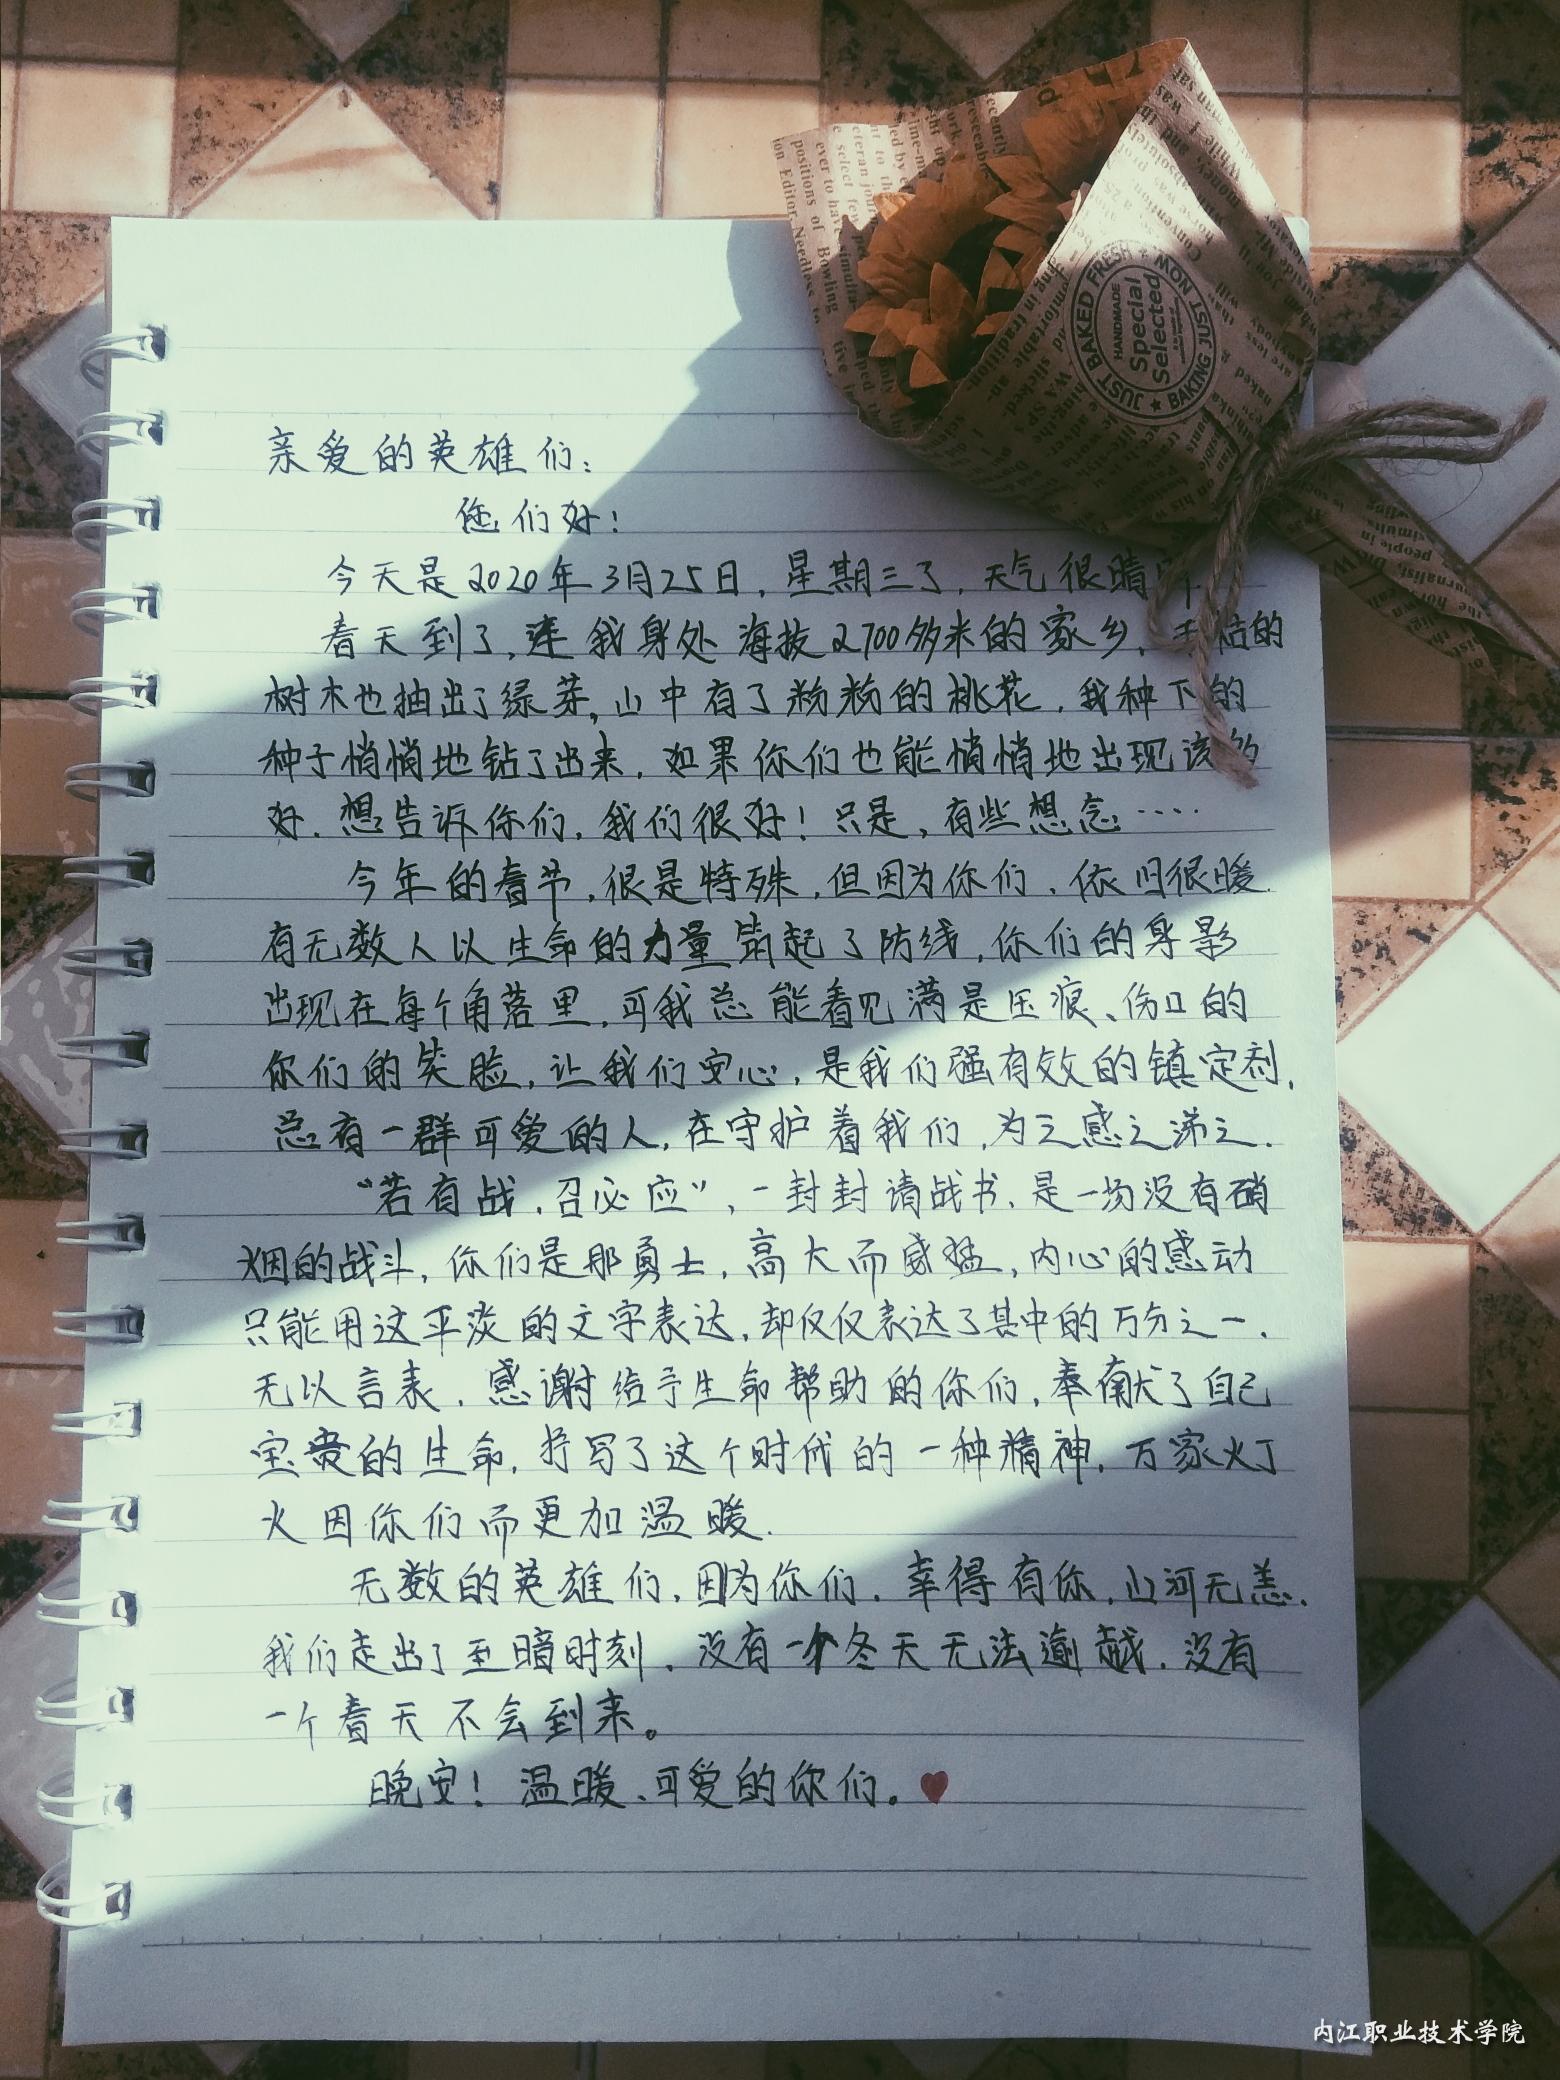 亲爱的英雄们：
您们好！
今天是2020年3月25日，星期三了，天气很晴
春天到了，连我身处海拔2700多米的家乡，干枯的
树木也抽出了绿芽，山中有了粉粉的桃花，我种下的
种子悄悄地钻了出来，如果你们也能悄悄地出现该多
好，想告诉你们，我们很好！只是，有些想念……
今年的春节，很是特殊，但因为你们，依旧很暖，
有无数人以生命的力量筑起了防线，你们的身影
出现在每个角落里，可我总能看见满是压痕、伤口的
你们的笑脸，让我们安心，是我们强有效的镇定剂，
总有一群可爱的人，在守护着我们，为之感之涕之．
“若有战，召必应”，一封封请战书，是一场没有硝
烟的战斗，你们是那勇士，高大而威猛，内心的感动
只能用这平淡的文字表达，却仅仅表达了其中的万分之一，
无以言表，感谢给予生命帮助的你们，奉献了自己
宝贵的生命，抒写了这个时代的一种精神，万家灯
火因你们而更加温暖．
无数的英雄们，因为你们，幸得有你，山河无恙．
我们走出了至暗时刻，没有一个冬天无法逾越，没有
一个春天不会到来。
晚安！温暖、可爱的你们。
JUST BAKED FRESH
HANDMADE
Special
Selected
BAKING JUST NOW
内江职业技术学院